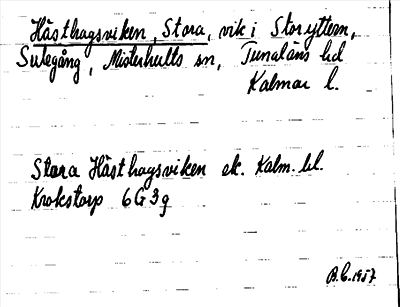 Hästhagsviken, Stora, vik i Storyttern,
Sutegång, Misterhults sn, Tunaläns hd
Kalmar l.
Stora Hästhagsviken ek. Kalm. bl.
Krokstorp 6G3g
B.C. 1957